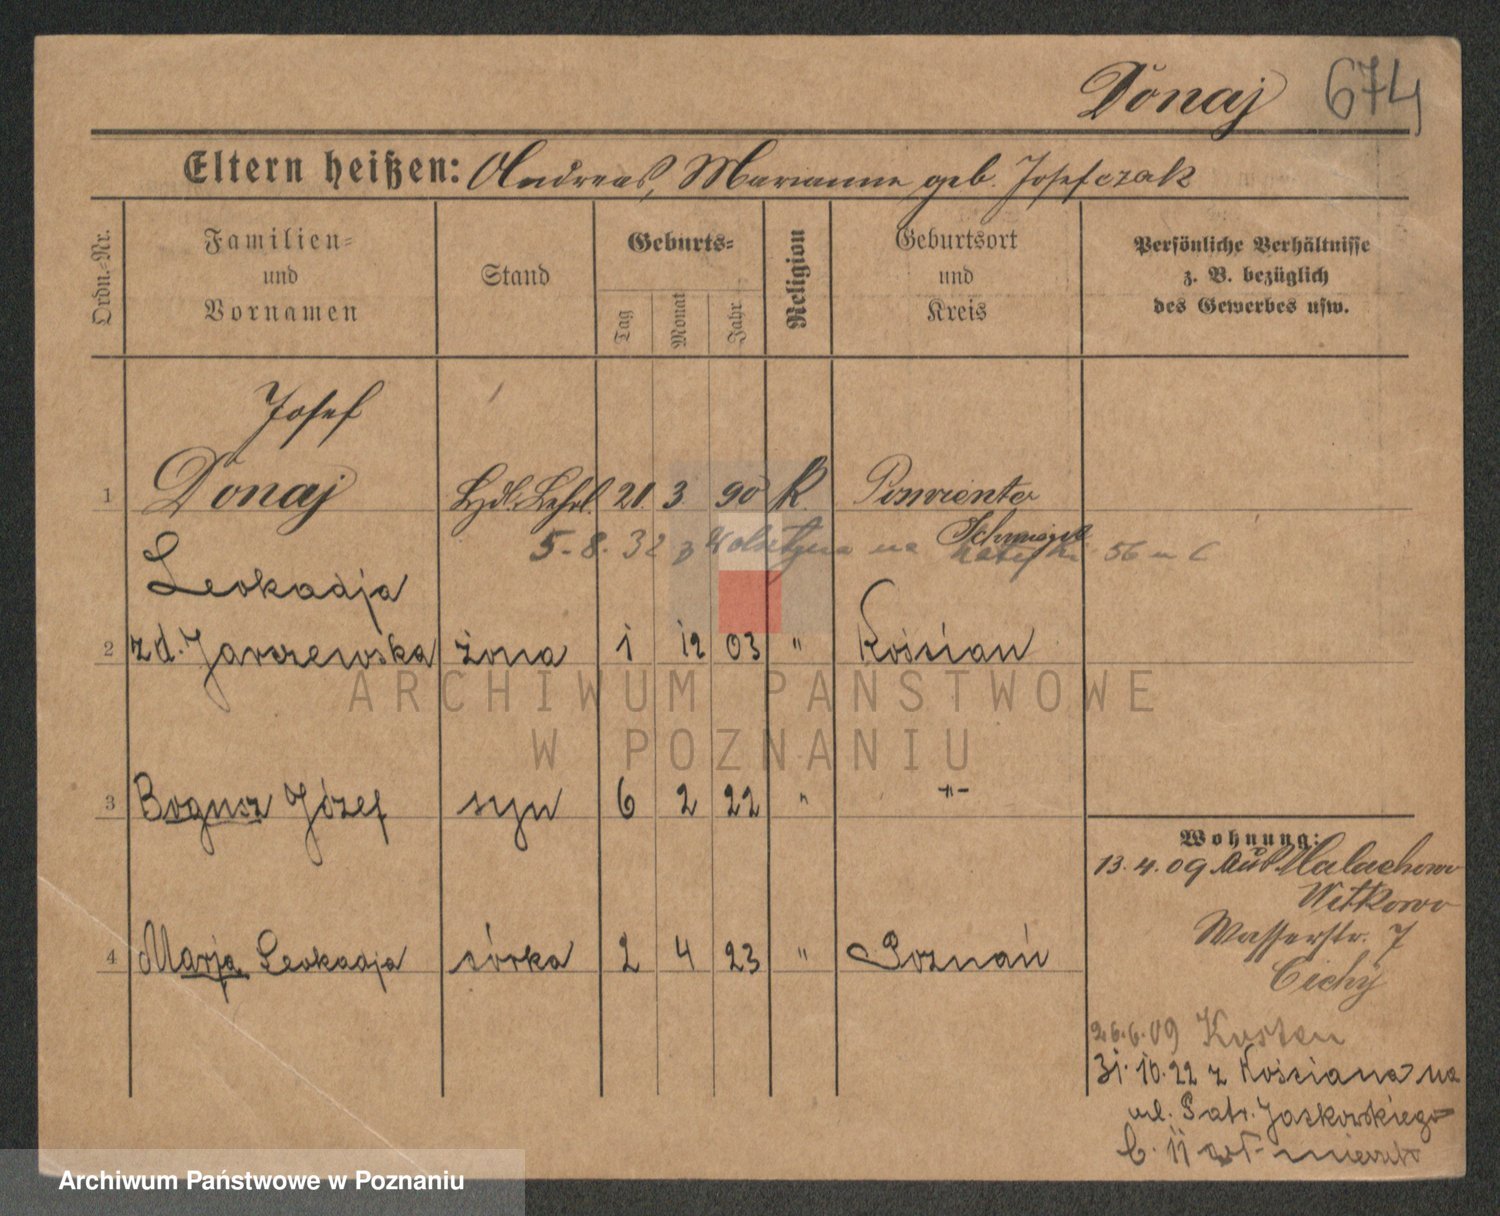 Donaj 674
Eltern heißen: Andreas, Marianne geb. Josefczak
Ordn.-Nr.
Familien-
und
Vornamen
Stand
Geburts-
Tag
Monat
Jahr
Religion
Geburtsort
und
Kreis
Persönliche Verhältnisse
z. B. bezüglich
des Gewerbes usw.
Josef
1 Donaj Hdl. Lehrl. 21. 3 90 K.
Schmiegel
5-8.32 z Wolsztyna na 56 m 6
Leokadja
2 zd. Jarszewska żona 1 12 03 " Kościan
3 Bogusz Józef syn 6 2 22 " -"-
4 Marja Leokadja córka 2 4 23 " Poznań
Wohnung:
13.4.09 aus Malachowo
Witkowo
Wasserstr. 7
Cichy
26.6.09 Kosten
31.10.22 z Kościana na
ul. Patr. Jackowskiego
ARCHIWUM PAŃSTWOWE
W POZNANIU
Archiwum Państwowe w Poznaniu